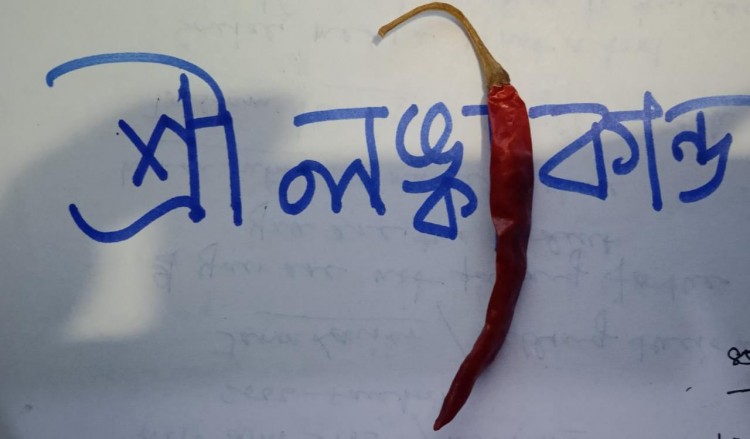 শ্রীলঙ্কাকান্ড